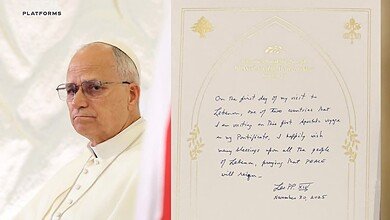 PLATFORMS
On the first day of my visit to
Lebanon, one of two countries that
I am visiting on this first Apostolic voyage
in my Pontificate, I happily wish
many blessings upon all the people
of Lebanon, praying that PEACE
will reign.
Leo PP. XIV
November 30, 2025